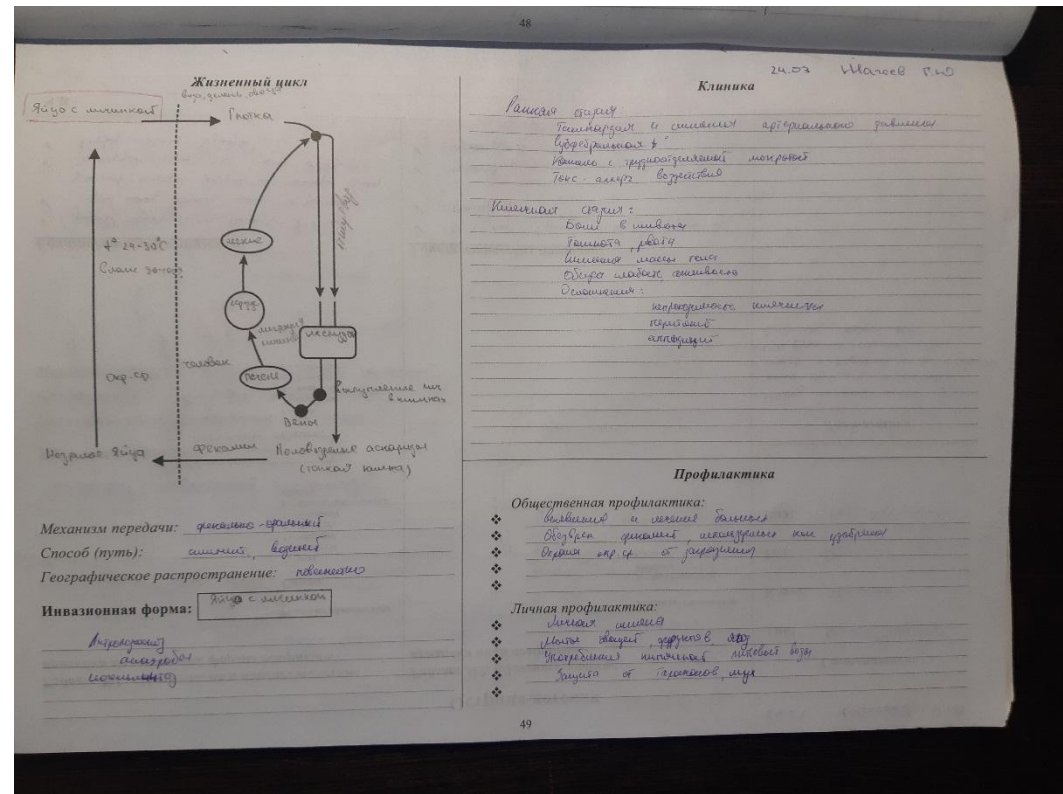 48
Жизненный цикл
вода, земля, овощи
Яйцо с личинкой
Глотка
t° 24-30°C
легкие
сердц.
печень
Вены
человек
окр. ср.
Незрелое яйцо
фекалии
Половозрелые аскариды
(тонкой кишка)
Механизм передачи: фекально-оральный
Способ (путь): водный
Географическое распространение: повсеместно
Инвазионная форма: Яйцо с личинкой
анаэробы
24.03
Клиника
Ранняя стадия
артериального давления
Субфебрильная t°
с трудноотделяемой мокротой
Токс-аллерг воздействия
Кишечная стадия:
Боли в животе
Тошнота, рвота
массы тела
Общая слабость
Осложнения:
непроходимость кишечника
перитонит
аппендицит
Профилактика
Общественная профилактика:
выявление и лечение больных
фекалий, используемых как удобрения
Охрана окр. ср. от загрязнения
Личная профилактика:
Личная гигиена
Мытье овощей, фруктов, ягод
Употребление кипяченой питьевой воды
Защита от тараканов, мух
49